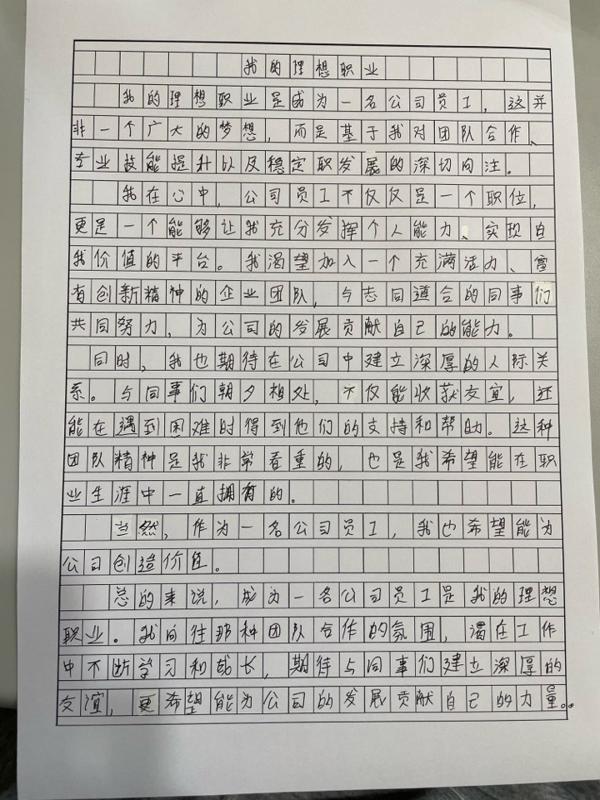 我的理想职业
我的理想职业是成为一名公司员工，这并
非一个广大的梦想，而是基于我对团队合作、
专业技能提升以及稳定职发展的深切向注。
我在心中，公司员工不仅仅是一个职位，
更是一个能够让我充分发挥个人能力、实现自
我价值的平台。我渴望加入一个充满活力、富
有创新精神的企业团队，与志同道合的同事们
共同努力，为公司的发展贡献自己的能力。
同时，我也期待在公司中建立深厚的人际关
系。与同事们朝夕相处，不仅能收获友宜，还
能在遇到困难时得到他们的支持和帮助。这种
团队精神是我非常看重的，也是我希望能在职
业生涯中一直拥有的。
当然，作为一名公司员工，我也希望能为
公司创造价值。
总的来说，成为一名公司员工是我的理想
职业。我向往那种团队合作的氛围，渴在工作
中不断学习和成长，期待与同事们建立深厚的
友谊，更希望能为公司的发展贡献自己的力量。